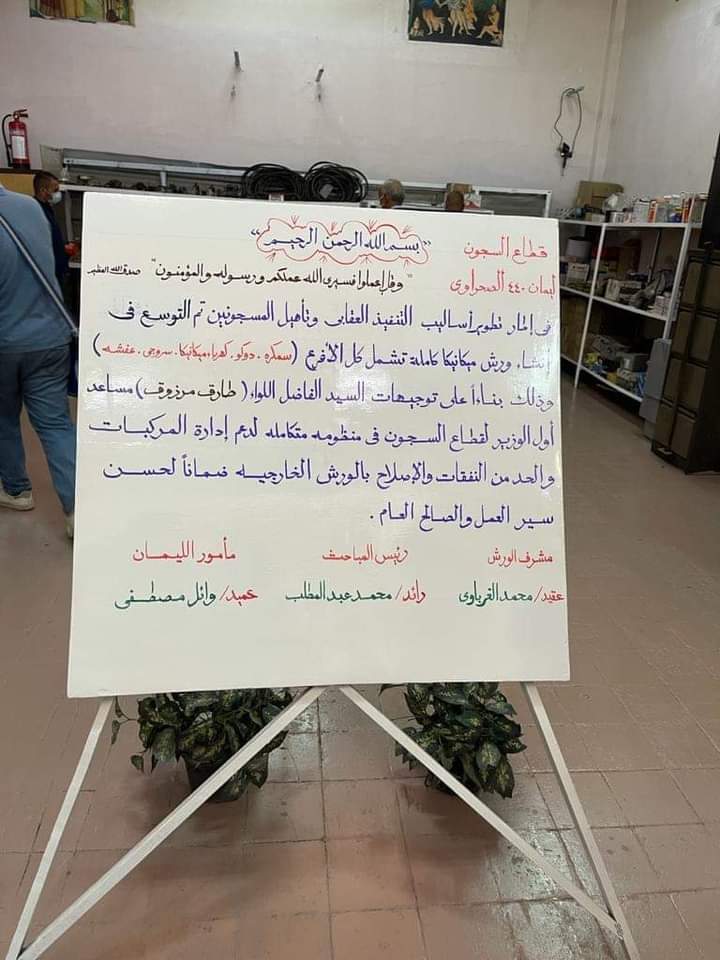 قطاع السجون
"بسم الله الرحمن الرحيم"
ليمان ٤٤٠ الصحراوى
"وقل إعملوا فسيرى الله عملكم ورسوله والمؤمنون" صدق الله العظيم
فى إطار تطوير أساليب التنفيذ العقابى وتأهيل المسجونين تم التوسع فى
إنشاء ورش ميكانيكا كاملة تشمل كل الأفرع (سمكره . دوكو . كهرباء . ميكانيكا . سروجى . عفشه)
وذلك بناءاً على توجيهات السيد الفاضل اللواء (طارق مرزوق) مساعد
أول الوزير لقطاع السجون فى منظومه متكامله لدعم إدارة المركبات
والحد من النفقات والإصلاح بالورش الخارجيه ضماناً لحسن
سير العمل والصالح العام .
مشرف الورش رئيس المباحث مأمور الليمان
عقيد/ محمد القرباوى رائد/ محمد عبد المطلب عميد/ وائل مصطفى